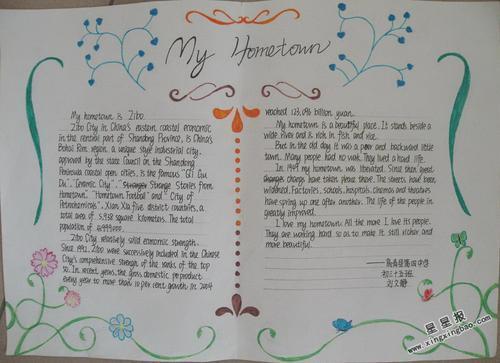 My Hometown
My hometown is Zibo.
Zibo City in China's eastern coastal economic
in the central part of Shandong Province, is China's
Bohai Rim region, a unique style industrial city,
approved by the state Council on the Shandong
Peninsula coastal open cities, is the famous "Qi Gu
Du", "Ceramic City", Strange Stories from
Hometown" "Hometown Football" and "City of
Petrochemicals". Xian Xia five district countries, a
total area of 5,938 square kilometers. The total
population of
Zibo City relatively solid economic strength.
Since 1992, Zibo were successively included in the Chinese
City's comprehensive strength of the ranks of the top
50. In recent years, the gross domestic product
every year to more than 10 per cent growth in 2004
reached 123.096 billion yuan.
My hometown is a beautiful place. It stands beside a
wide river and is rich in fish and rice.
But in the old day it was a poor and backward little
town. Many people had no work. They lived a hard life.
In 1949 my hometown was liberated. Since then great
changes have taken place there. The streets have been
widened. Factories, schools, hospitals, cinemas and theatres
have spring up one after another. The life of the people is
greatly improved.
I love my hometown. All the more I love its people.
They are working hard so as to make it still richer and
more beautiful.
初三十五班
星星报
www.xingxingbao.com